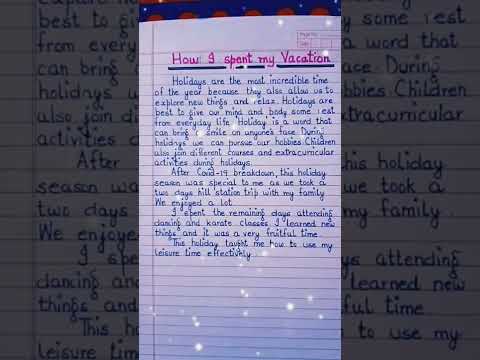 How I spent my Vacation
Holidays are the most incredible time
of the year because they also allow us to
explore new things and relax. Holidays are
best to give our mind and body some rest
from everyday life. 'Holiday' is a word that
can bring a smile on anyone's face. During
holidays we can pursue our hobbies. Children
also join different courses and extracurricular
activities during holidays.
After Covid-19 breakdown, this holiday
season was special to me as we took a
two days hill station trip with my family
We enjoyed a lot.
I spent the remaining days attending
dancing and karate classes. I learned new
things and it was a very fruitful time.
This holiday taught me how to use my
leisure time effectively.